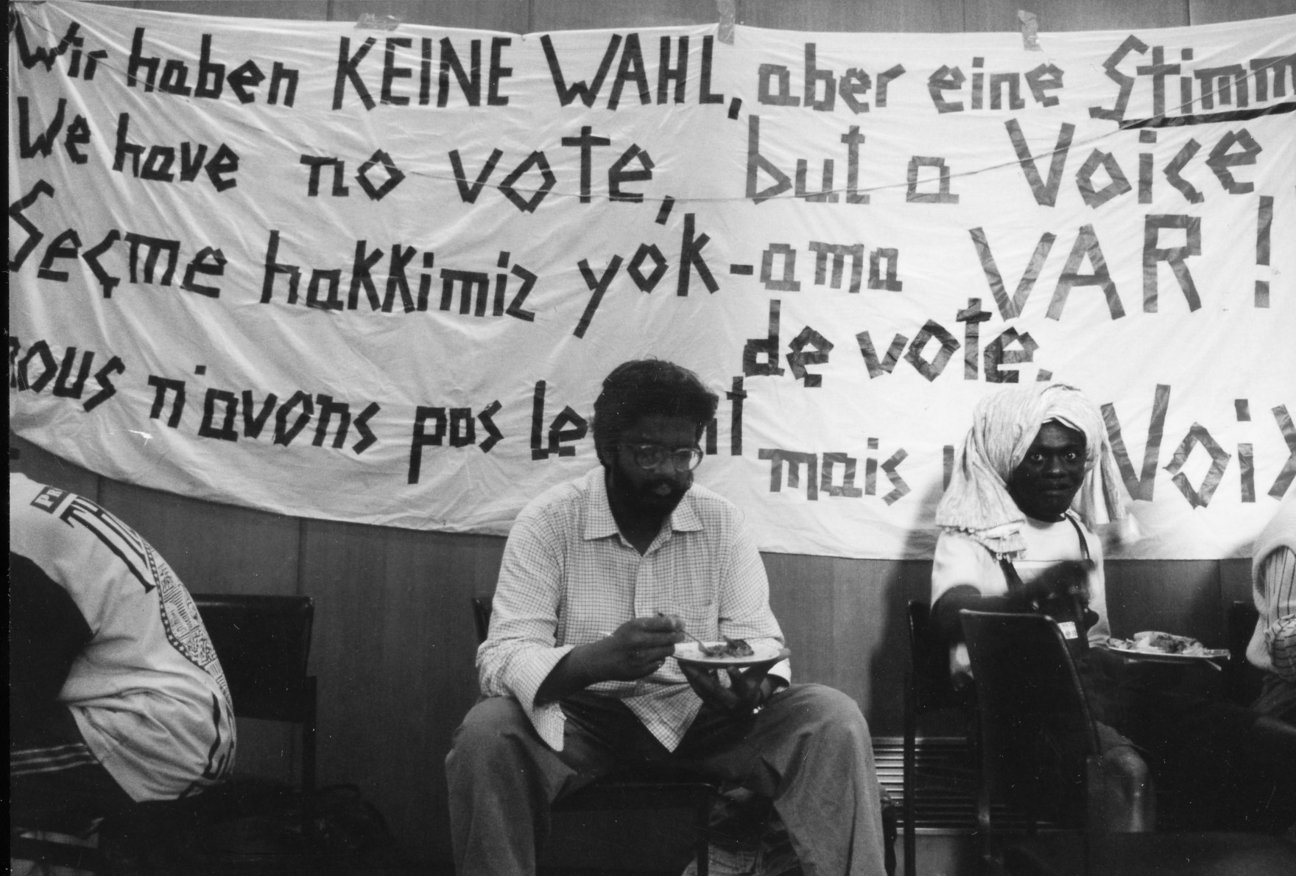 Wir haben KEINE WAHL, aber eine Stimm
We have no vote, but a Voice
Seçme hakkimiz yok - ama VAR !
nous n'avons pas le de vote.
mais Voix